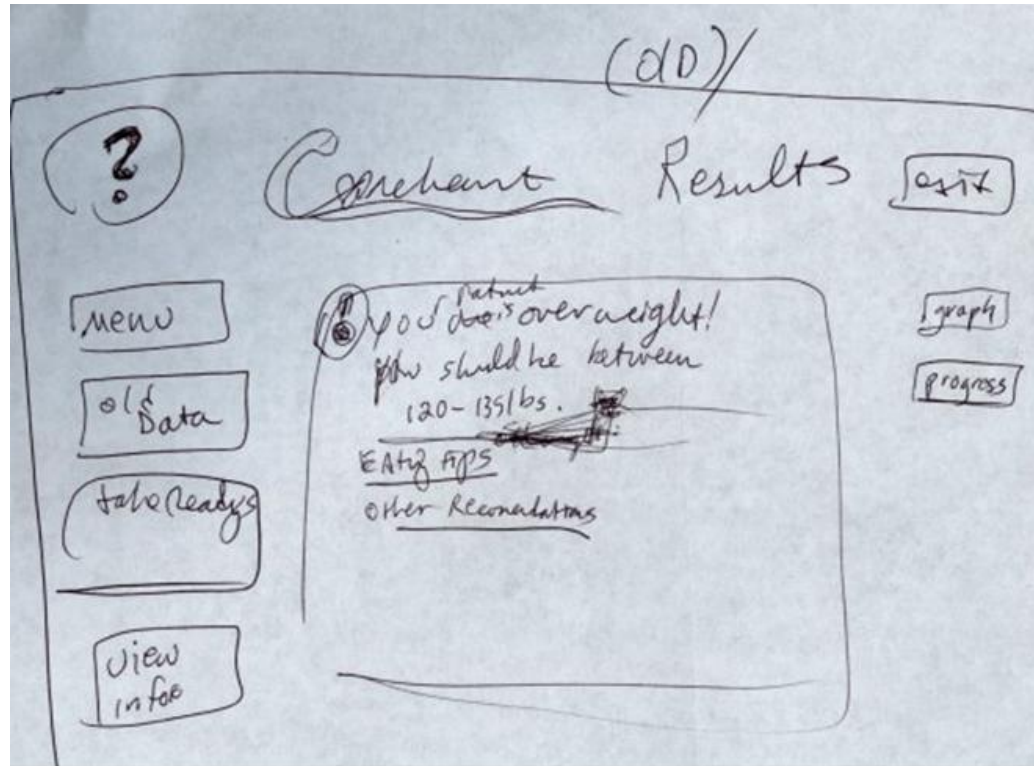 (dD)/
?
Results
exit
menu
old Data
take Readgs
view
info
! your patient is overweight!
should be between
120-135lbs.
Eatig tips
other Recomendations
graph
progross